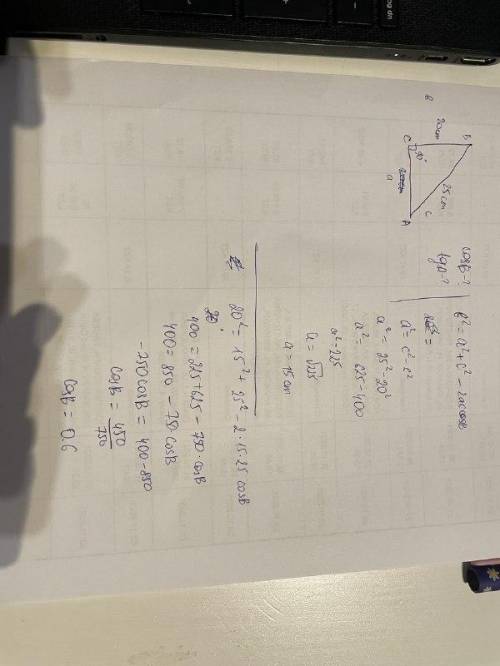 B
20 cm
C
90°
25 cm
a
A
C
cosB-?
tgA-?
b² = a² + c² - 2accosB
a² = c² - b²
a² = 25² - 20²
a² = 625 - 400
a² = 225
a = √225
a = 15 cm
20² = 15² + 25² - 2·15·25 cosB
400 = 225 + 625 - 750·cosB
400 = 850 - 750·cosB
-750cosB = 400 - 850
cosB = 450/750
cosB = 0,6